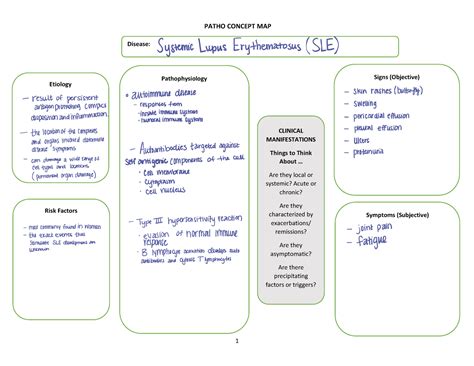 PATHO CONCEPT MAP
Disease: Systemic Lupus Erythematosus (SLE)
Etiology
- result of persistent
antigen promoting complex
deposition and inflammation.
- the location of the complexes
and organs involved determine
disease symptoms
- can damage a wide range of
cell types and locations
(potential organ damage)
Risk Factors
- most commonly found in women
- the exact events that
stimulate SLE development are
unknown
Pathophysiology
• autoimmune disease
- responses from
- Innate immune system
- humoral immune system
- Autoantibodies targeted against
self antigenic components of the cell
• Cell membrane
• Cytoplasm
• cell nucleus
- Type III hypersensitivity reaction
• evasion of normal immune
response
• B lymphocyte activation develops auto
antibodies and T lymphocytes
CLINICAL
MANIFESTATIONS
Things to Think
About ...
Are they local or
systemic? Acute or
chronic?
Are they
characterized by
exacerbations/
remissions?
Are they
asymptomatic?
Are there
precipitating
factors or triggers?
Signs (Objective)
- skin rashes (butterfly)
- swelling
- pericardial effusion
- pleural effusion
- ulcers
- proteinuria
Symptoms (Subjective)
- joint pain
- fatigue
1